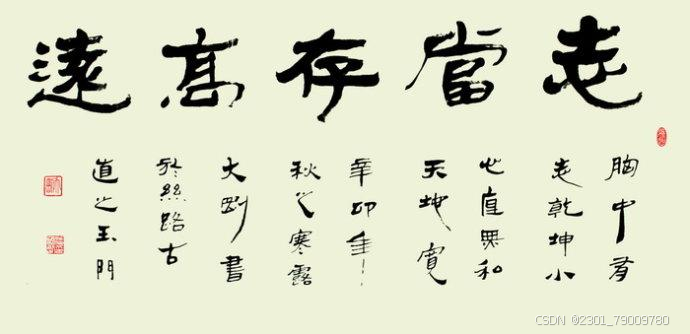 志當存高遠
胸中有
志乾坤小
心直無私
天地寬
辛卯年
秋之寒露
大剛書
於絲路古
道之玉門
CSDN @2301_79009780